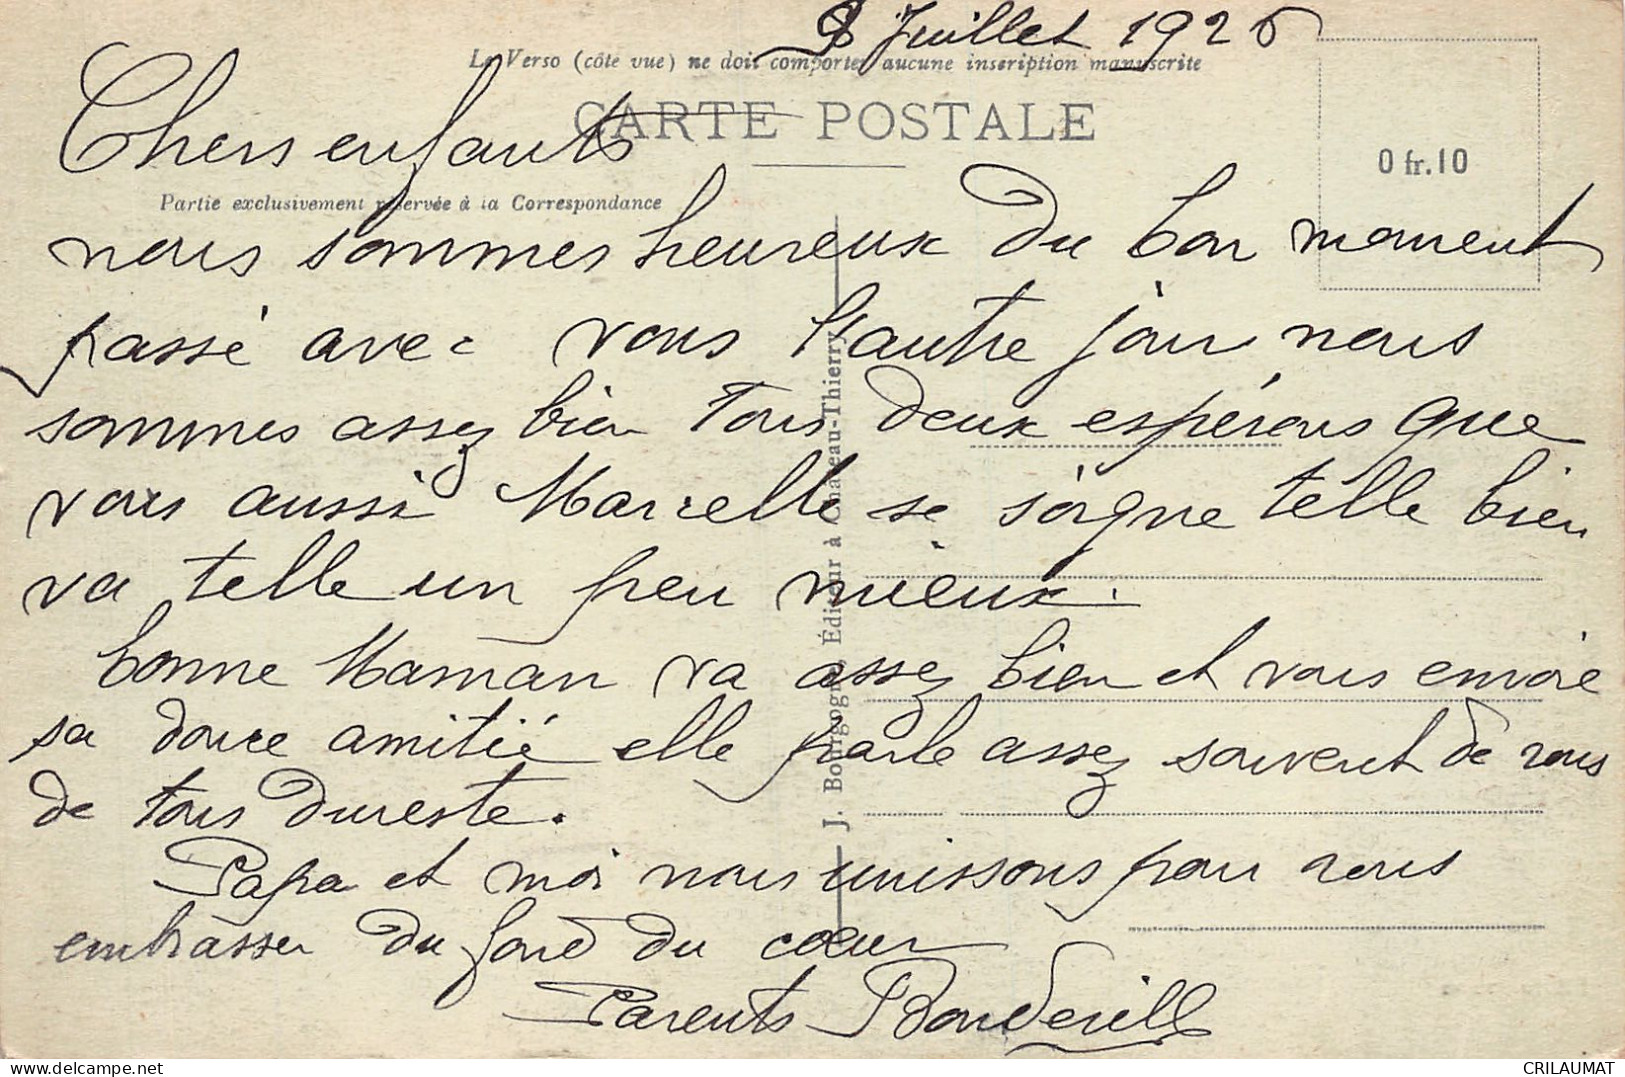 8 Juillet 1926
Le Verso (côté vue) ne doit comporter aucune inscription manuscrite
CARTE POSTALE
Chers enfants
0 fr.10
Partie exclusivement réservée à la Correspondance
nous sommes heureux du bon moment
passé avec vous l'autre jour nous
sommes assez bien tous deux espérons que
vous aussi Marcelle se soigne telle bien
va telle un peu mieux.
bonne Maman va assez bien et vous envoie
sa douce amitié elle parle assez souvent de vous
de tous dureste.
Papa et moi nous unissons pour vous
embrasser du fond du cœur
Parents Bondeville
J. Bourgogne, Éditeur à Château-Thierry
www.delcampe.net
CRILAUMAT